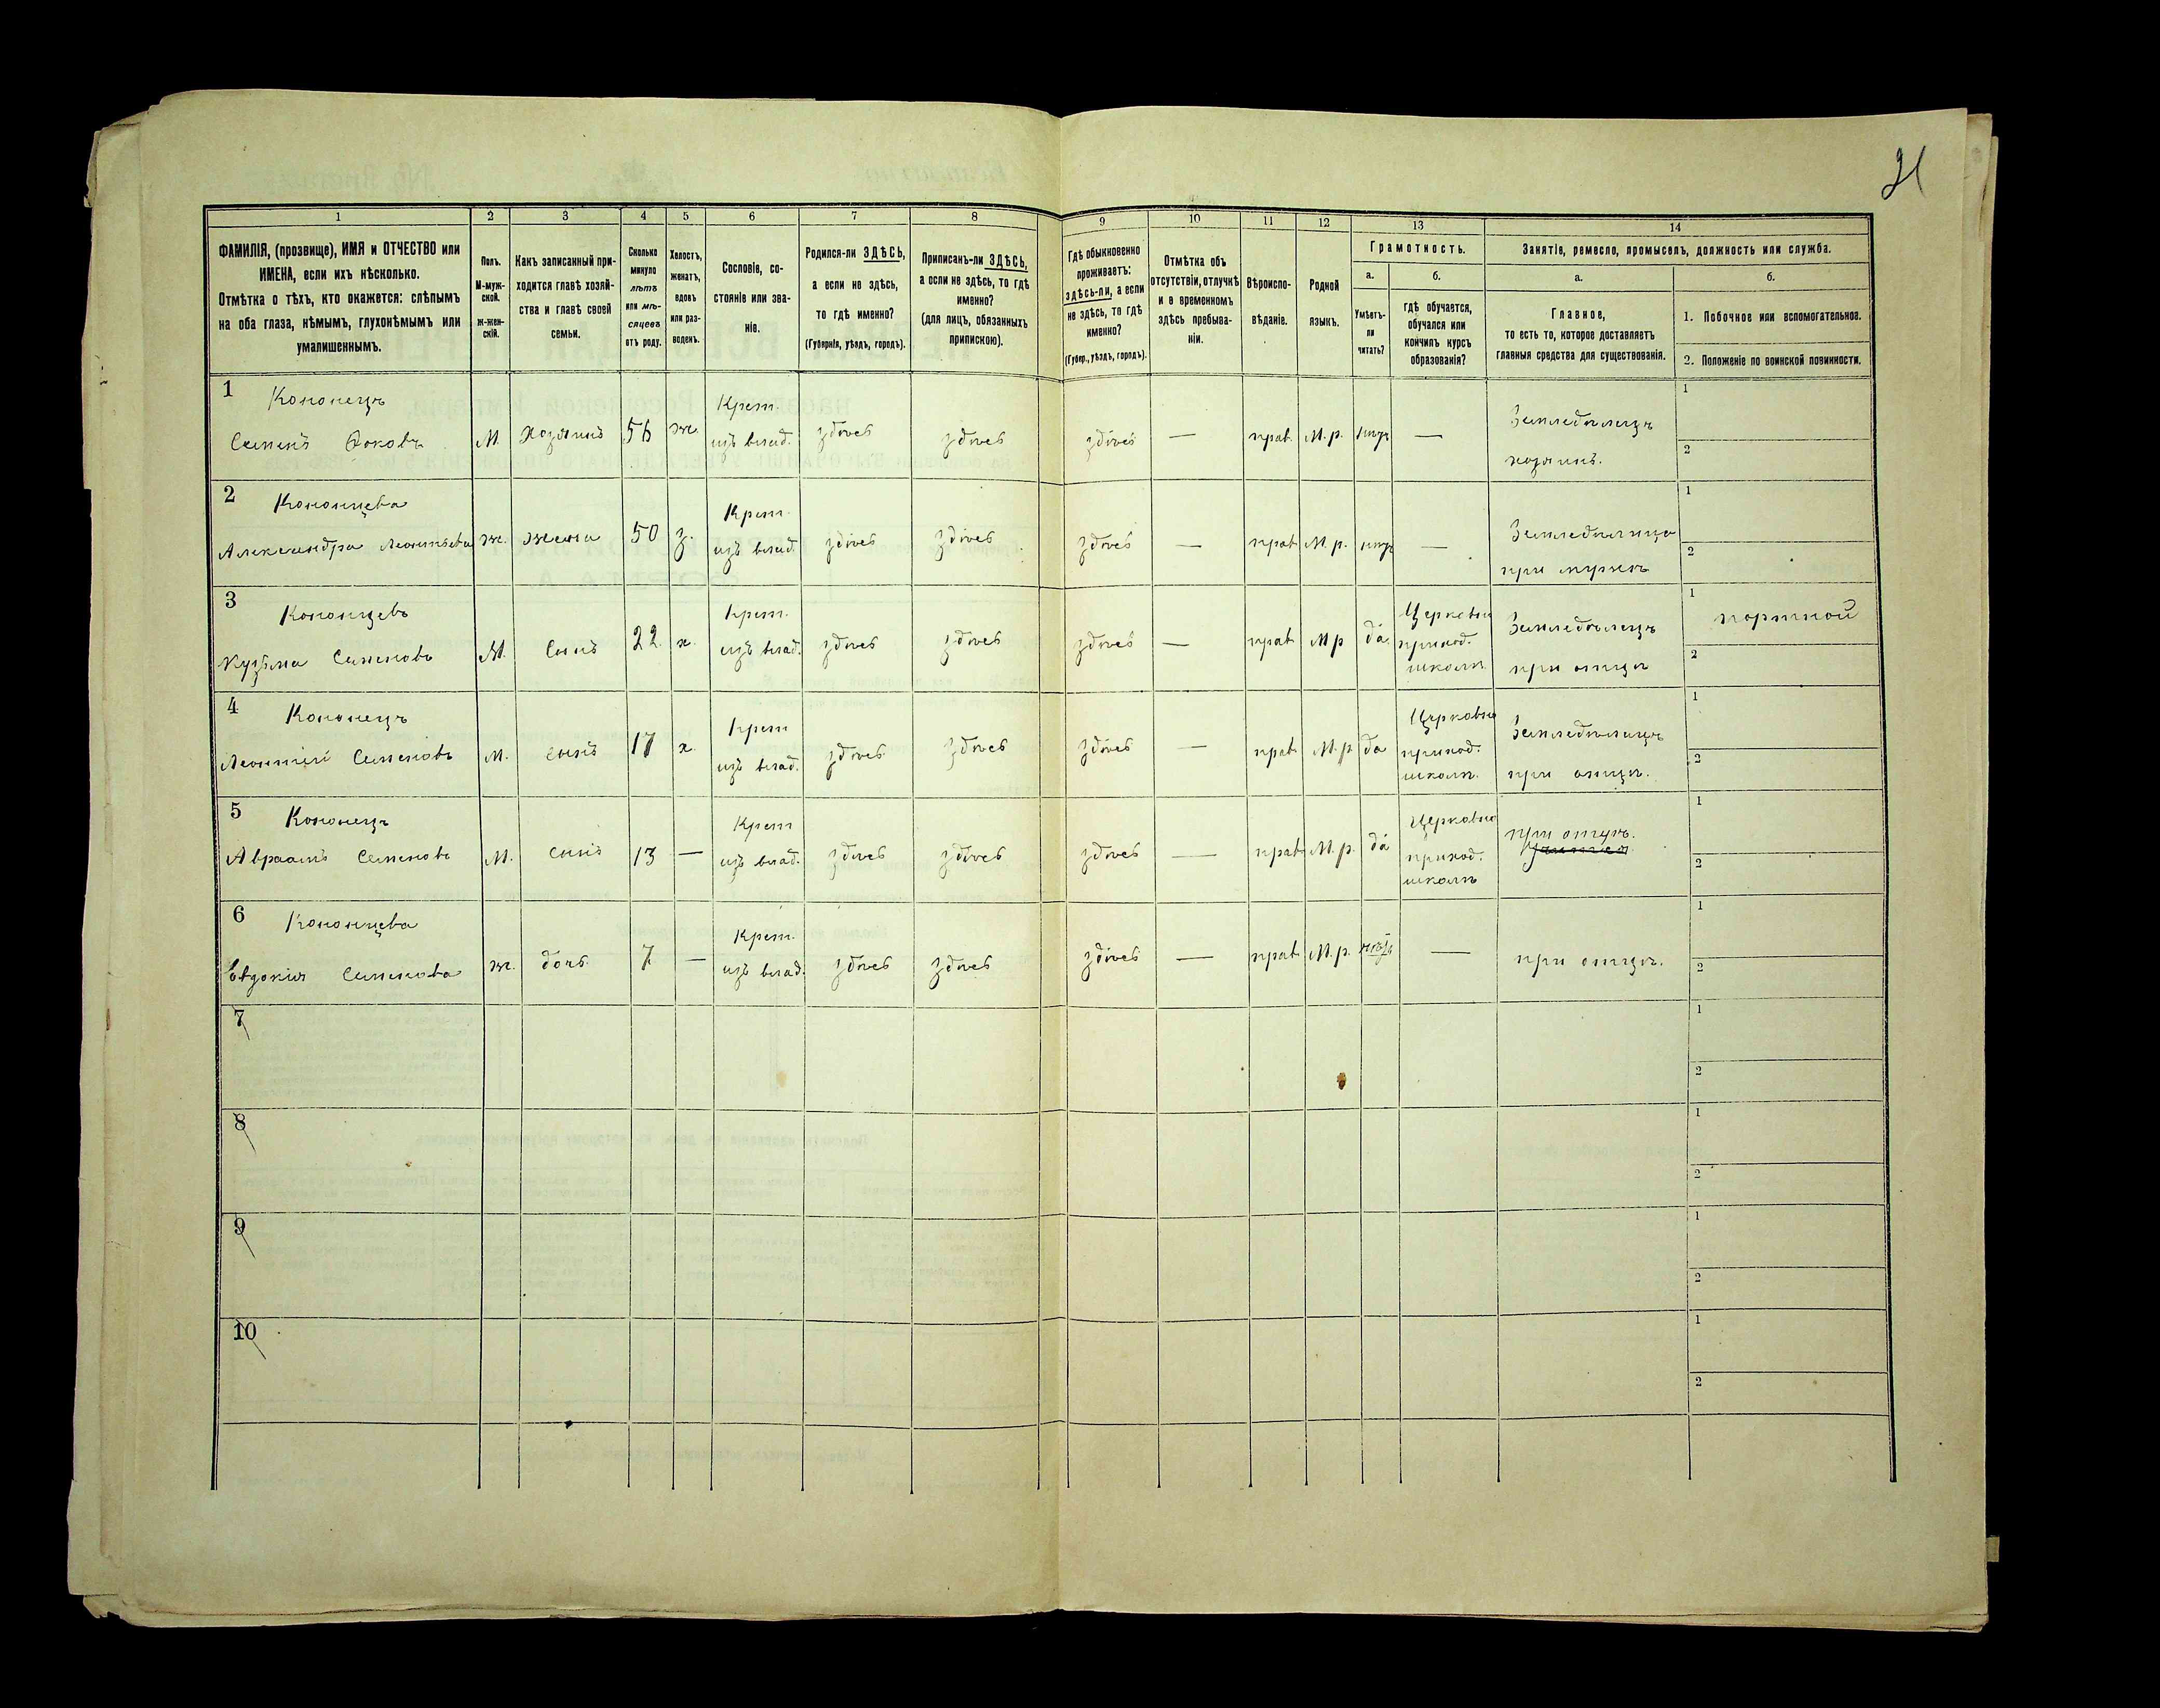 21
1 2 3 4 5 6 7 8 9 10 11 12 13 14
ФАМИЛІЯ, (прозвище), ИМЯ и ОТЧЕСТВО или
ИМЕНА, если ихъ нѣсколько.
Отмѣтка о тѣхъ, кто окажется: слѣпымъ
на оба глаза, нѣмымъ, глухонѣмымъ или
умалишеннымъ.
Полъ.
М-муж-
ской.
ж-жен-
скій.
Какъ записанный при-
ходится главѣ хозяй-
ства и главѣ своей
семьи.
Сколько
минуло
лѣтъ
или мѣ-
сяцевъ
отъ роду.
Холостъ,
женатъ,
вдовъ
или раз-
веденъ.
Сословіе, со-
стояніе или зва-
ніе.
Родился-ли ЗДѢСЬ,
а если не здѣсь,
то гдѣ именно?
(Губернія, уѣздъ, городъ).
Приписанъ-ли ЗДѢСЬ,
а если не здѣсь, то гдѣ
именно?
(для лицъ, обязанныхъ
припискою).
Гдѣ обыкновенно
проживаетъ:
здѣсь-ли, а если
не здѣсь, то гдѣ
именно?
(Губер., уѣздъ, городъ).
Отмѣтка объ
отсутствіи, отлучкѣ
и в временномъ
здѣсь пребыва-
ніи.
Вѣроиспо-
вѣданіе.
Родной
языкъ.
Грамотность.
а.
Умѣетъ-
ли
читать?
б.
гдѣ обучается,
обучался или
кончилъ курсъ
образованія?
Занятіе, ремесло, промыселъ, должность или служба.
а.
Главное,
то есть то, которое доставляетъ
главныя средства для существованія.
б.
1. Побочное или вспомогательное.
2. Положеніе по воинской повинности.
1 Кононецъ Крест. 1
Семенъ М. Хозяинъ 56 ж. изъ влад. здѣсь здѣсь здѣсь — прав. М. р. — Земледѣлецъ
хозяинъ. 2
2 Кононцева Крест. 1
Александра Леонтьева ж. жена 50 з. изъ влад. здѣсь здѣсь здѣсь — прав М. р. — Земледѣлица
при мужѣ 2
3 Кононцевъ Крест. Церковн Земледѣлецъ 1 портной
Кузьма Семеновъ М. сынъ 22 х. изъ влад. здѣсь здѣсь здѣсь — прав М р да приход.
школѣ при отцѣ 2
4 Кононецъ Крест Церковно Земледѣлецъ 1
Леонтій Семеновъ М. сынъ 17 х. изъ влад. здѣсь здѣсь здѣсь — прав М. р да приход.
школѣ. при отцѣ. 2
5 Кононецъ Крест Церковно при отцѣ. 1
Авраамъ Семеновъ М. сынъ 13 — изъ влад. здѣсь здѣсь здѣсь — прав М. р. да приход.
школѣ 2
6 Кононцева Крест. 1
Евдокія Семенова ж. дочь 7 — изъ влад. здѣсь здѣсь здѣсь — прав М. р. — при отцѣ. 2
7 1
2
8 1
2
9 1
2
10 1
2